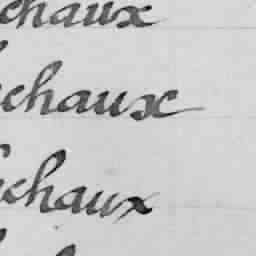 chaux
chaux
chaux